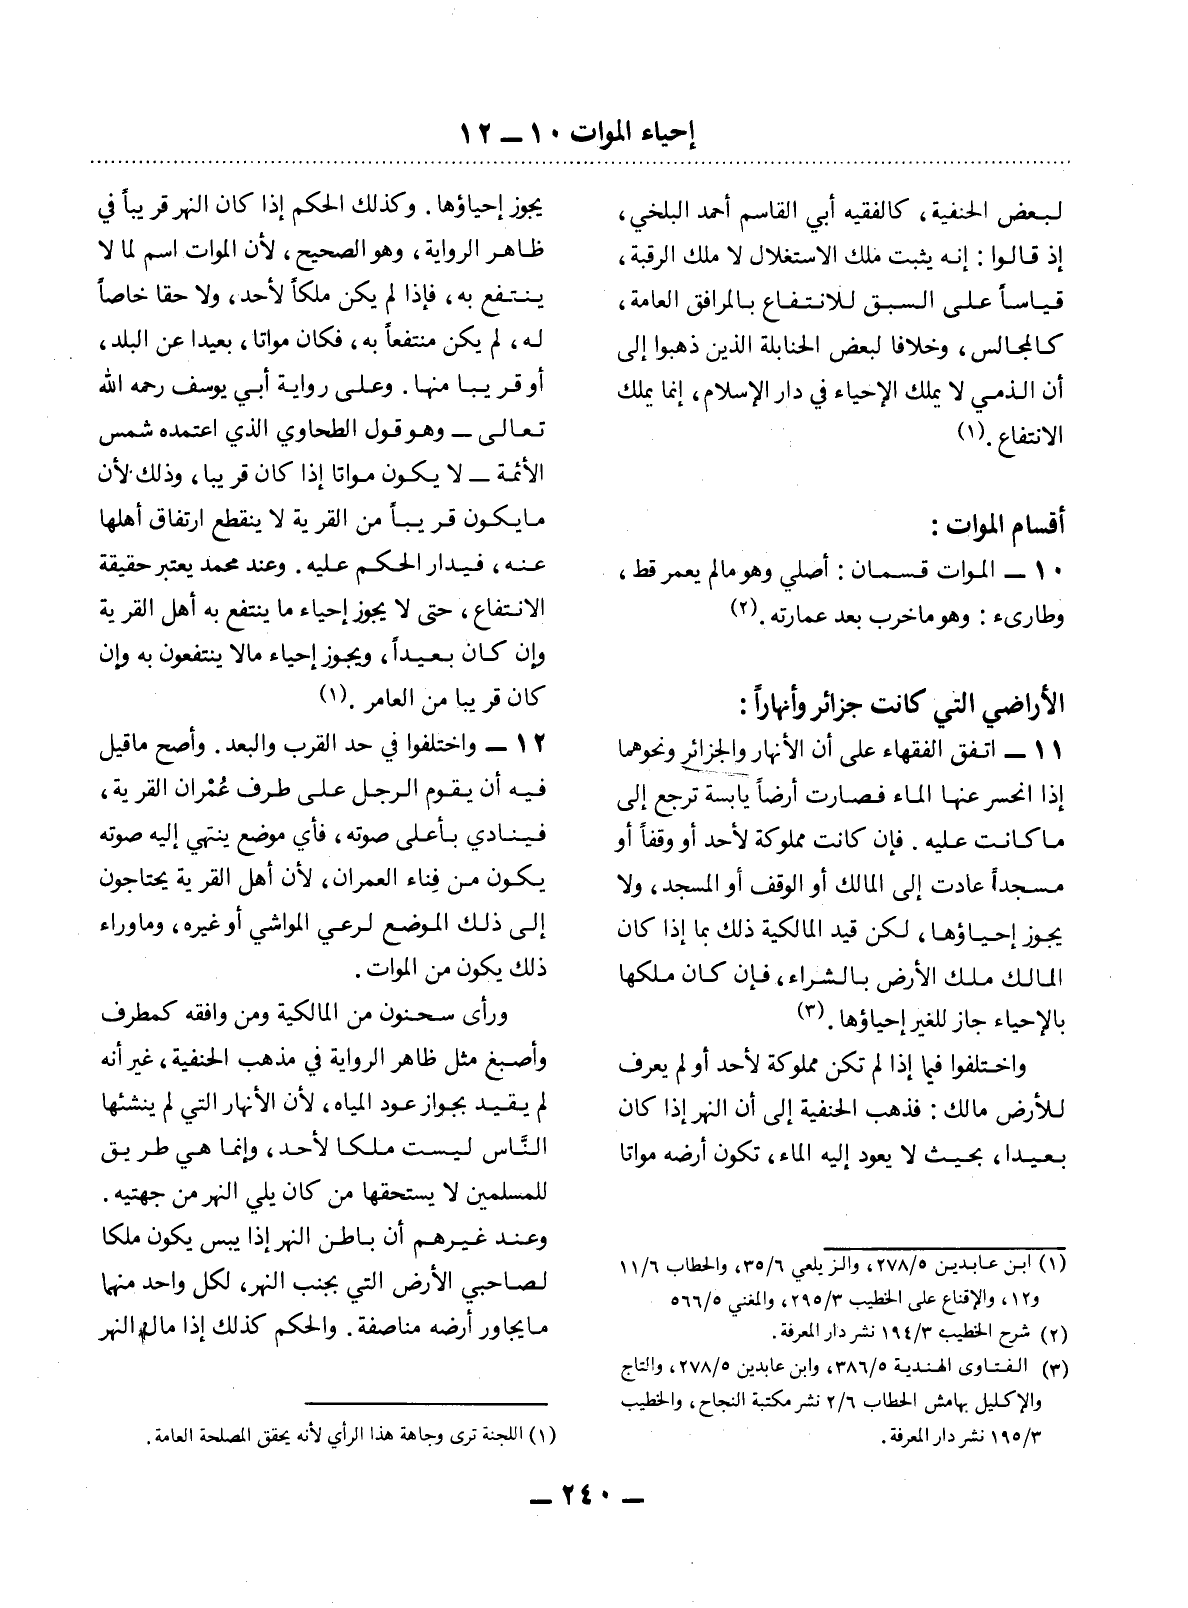 إحياء الموات ١٠ ــ ١٢
لبعض الحنفية، كالفقيه أبي القاسم أحمد البلخي،
إذ قالوا : إنه يثبت ملك الاستغلال لا ملك الرقبة،
قياساً على السبق للانتفاع بالمرافق العامة،
كالمجالس، وخلافا لبعض الحنابلة الذين ذهبوا إلى
أن الذمي لا يملك الإحياء في دار الإسلام، إنما يملك
الانتفاع .(١)
أقسام الموات :
١٠ ــ الموات قسمان : أصلي وهو مالم يعمر قط،
وطارىء : وهو ماخرب بعد عمارته .(٢)
الأراضي التي كانت جزائر وأنهاراً :
١١ ــ اتفق الفقهاء على أن الأنهار والجزائر ونحوهما
إذا انحسر عنها الماء فصارت أرضاً يابسة ترجع إلى
ماكانت عليه . فإن كانت مملوكة لأحد أو وقفاً أو
مسجداً عادت إلى المالك أو الوقف أو المسجد، ولا
يجوز إحياؤها، لكن قيد المالكية ذلك بما إذا كان
المالك ملك الأرض بالشراء، فإن كان ملكها
بالإحياء جاز للغير إحياؤها .(٣)
واختلفوا فيما إذا لم تكن مملوكة لأحد أو لم يعرف
للأرض مالك : فذهب الحنفية إلى أن النهر إذا كان
بعيدا، بحيث لا يعود إليه الماء، تكون أرضه مواتا
(١) ابن عابدين ٢٧٨/٥، والزيلعي ٣٥/٦، والحطاب ١١/٦
و١٢، والإقناع على الخطيب ٢٩٥/٣، والمغني ٥٦٦/٥
(٢) شرح الخطيب ١٩٤/٣ نشر دار المعرفة .
(٣) الفتاوى الهندية ٣٨٦/٥، وابن عابدين ٢٧٨/٥، والتاج
والإكليل بهامش الحطاب ٢/٦ نشر مكتبة النجاح، والخطيب
١٩٥/٣ نشر دار المعرفة .
يجوز إحياؤها . وكذلك الحكم إذا كان النهر قريباً في
ظاهر الرواية، وهو الصحيح، لأن الموات اسم لما لا
ينتفع به، فإذا لم يكن ملكاً لأحد، ولا حقا خاصاً
له، لم يكن منتفعاً به، فكان مواتا، بعيدا عن البلد،
أو قريبا منها . وعلى رواية أبي يوسف رحمه الله
تعالى ــ وهو قول الطحاوي الذي اعتمده شمس
الأئمة ــ لا يكون مواتا إذا كان قريبا، وذلك لأن
مايكون قريباً من القرية لا ينقطع ارتفاق أهلها
عنه، فيدار الحكم عليه . وعند محمد يعتبر حقيقة
الانتفاع، حتى لا يجوز إحياء ما ينتفع به أهل القرية
وإن كان بعيداً، ويجوز إحياء مالا ينتفعون به وإن
كان قريبا من العامر .(١)
١٢ ــ واختلفوا في حد القرب والبعد . وأصح ماقيل
فيه أن يقوم الرجل على طرف عُمْران القرية،
فينادي بأعلى صوته، فأي موضع ينتهي إليه صوته
يكون من فِناء العمران، لأن أهل القرية يحتاجون
إلى ذلك الموضع لرعي المواشي أو غيره، وماوراء
ذلك يكون من الموات .
ورأى سحنون من المالكية ومن وافقه كمطرف
وأصبغ مثل ظاهر الرواية في مذهب الحنفية، غير أنه
لم يقيد بجواز عود المياه، لأن الأنهار التي لم ينشئها
النَّاس ليست ملكا لأحد، وإنما هي طريق
للمسلمين لا يستحقها من كان يلي النهر من جهتيه .
وعند غيرهم أن باطن النهر إذا يبس يكون ملكا
لصاحبي الأرض التي بجنب النهر، لكل واحد منهما
مايجاور أرضه مناصفة . والحكم كذلك إذا مال النهر
(١) اللجنة ترى وجاهة هذا الرأي لأنه يحقق المصلحة العامة .
ــ ٢٤٠ ــ